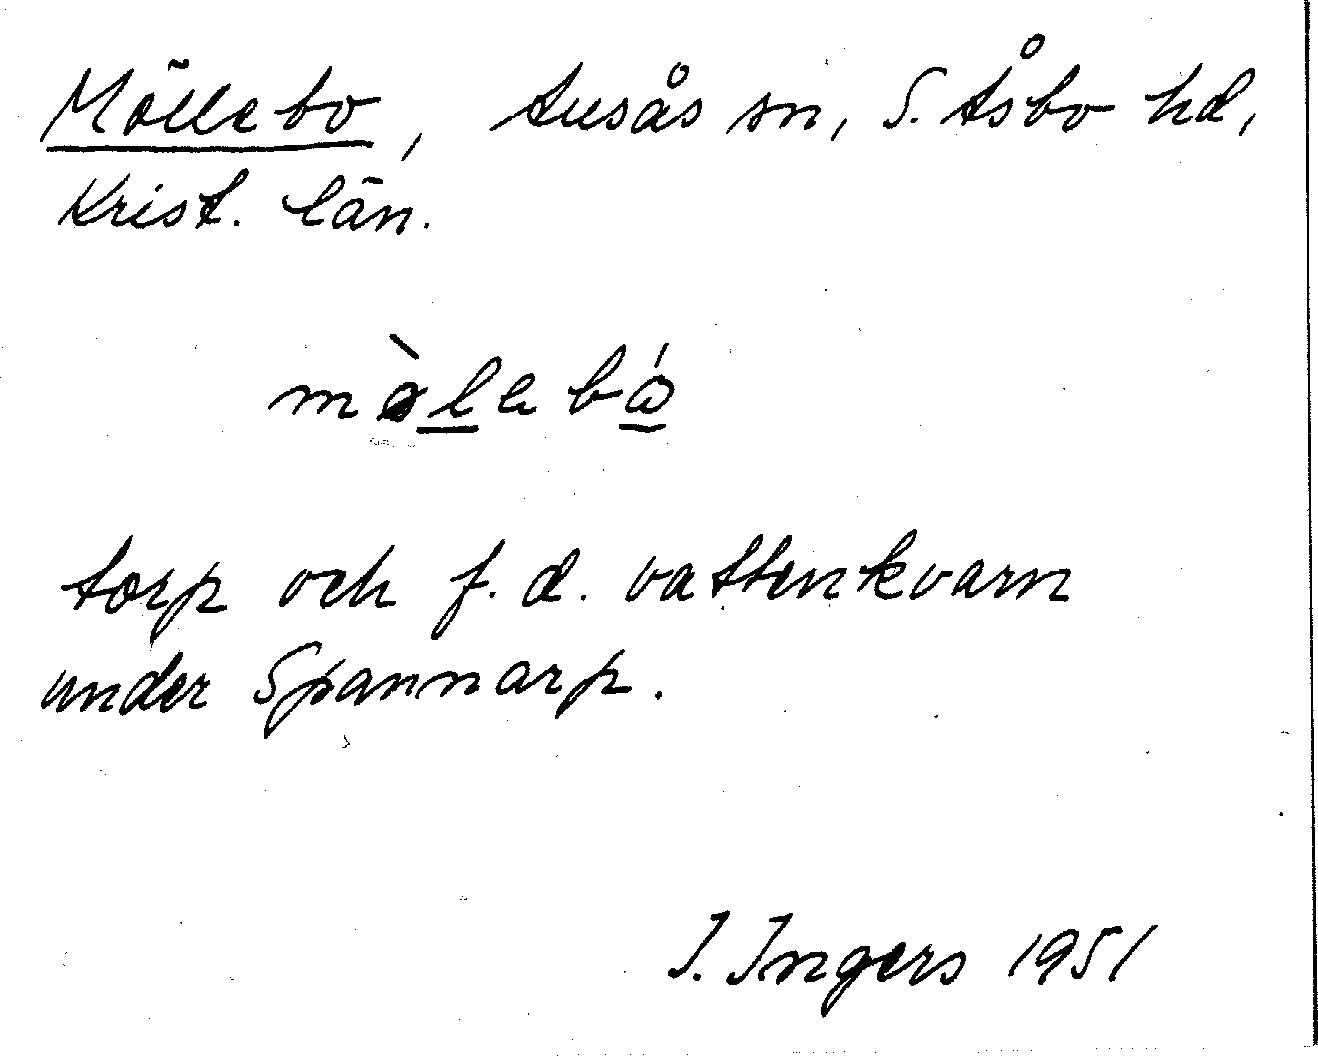 Möllebo, Ausås sn, S. Åsbo hd,
Krist. län.
torp och f.d. vattenkvarn
under Spannarp.
I. Ingers 1951